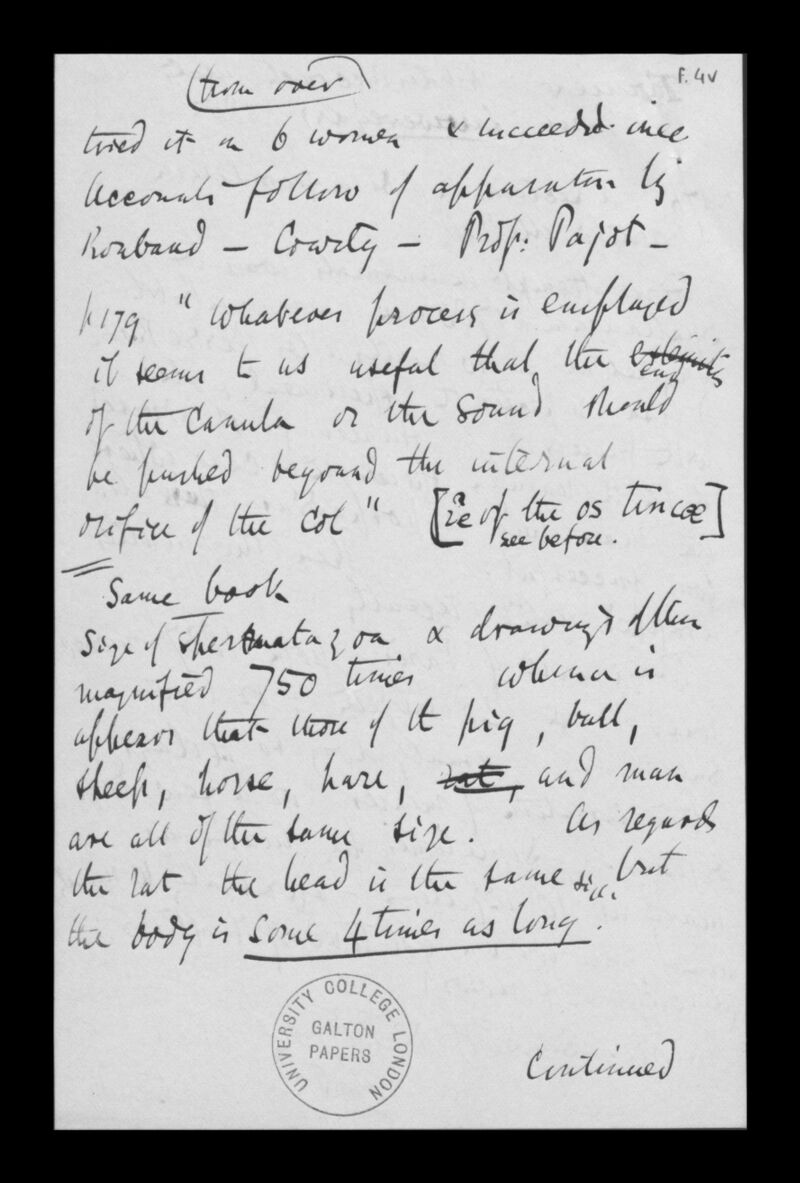 F. 4v
(from over)
tried it on 6 women & succeeded once
Accounts follow of apparatus by
Roubaud – Courty – Prof: Pajot –
p179 " Whatever process is employed
it seems to us useful that the extremity end
of the Canula or the Sound should
be pushed beyond the internal
orifice of the Col " [ie of the os tincæ]
see before.
Same book
Size of spermatazoa & drawings of them
magnified 750 times whence it
appears that those of the pig, bull,
sheep, horse, hare, rat, and man
are all of the same size. As regards
the rat the head is the same size but
the body is some 4 times as long.
UNIVERSITY COLLEGE LONDON
GALTON
PAPERS
Continued